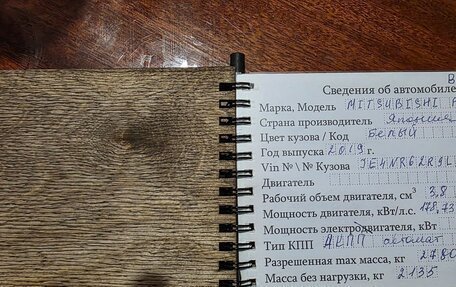 Сведения об автомобиле
Марка, Модель MITSUBISHI
Страна производитель Япония
Цвет кузова / Код Белый
Год выпуска 2019 г.
Vin № \ № Кузова JE4NR62R9L
Двигатель
Рабочий объем двигателя, см³ 3,8
Мощность двигателя, кВт/л.с. 178,73
Мощность электродвигателя, кВт
Тип КПП АКПП автомат
Разрешенная max масса, кг 2780
Масса без нагрузки, кг 2135